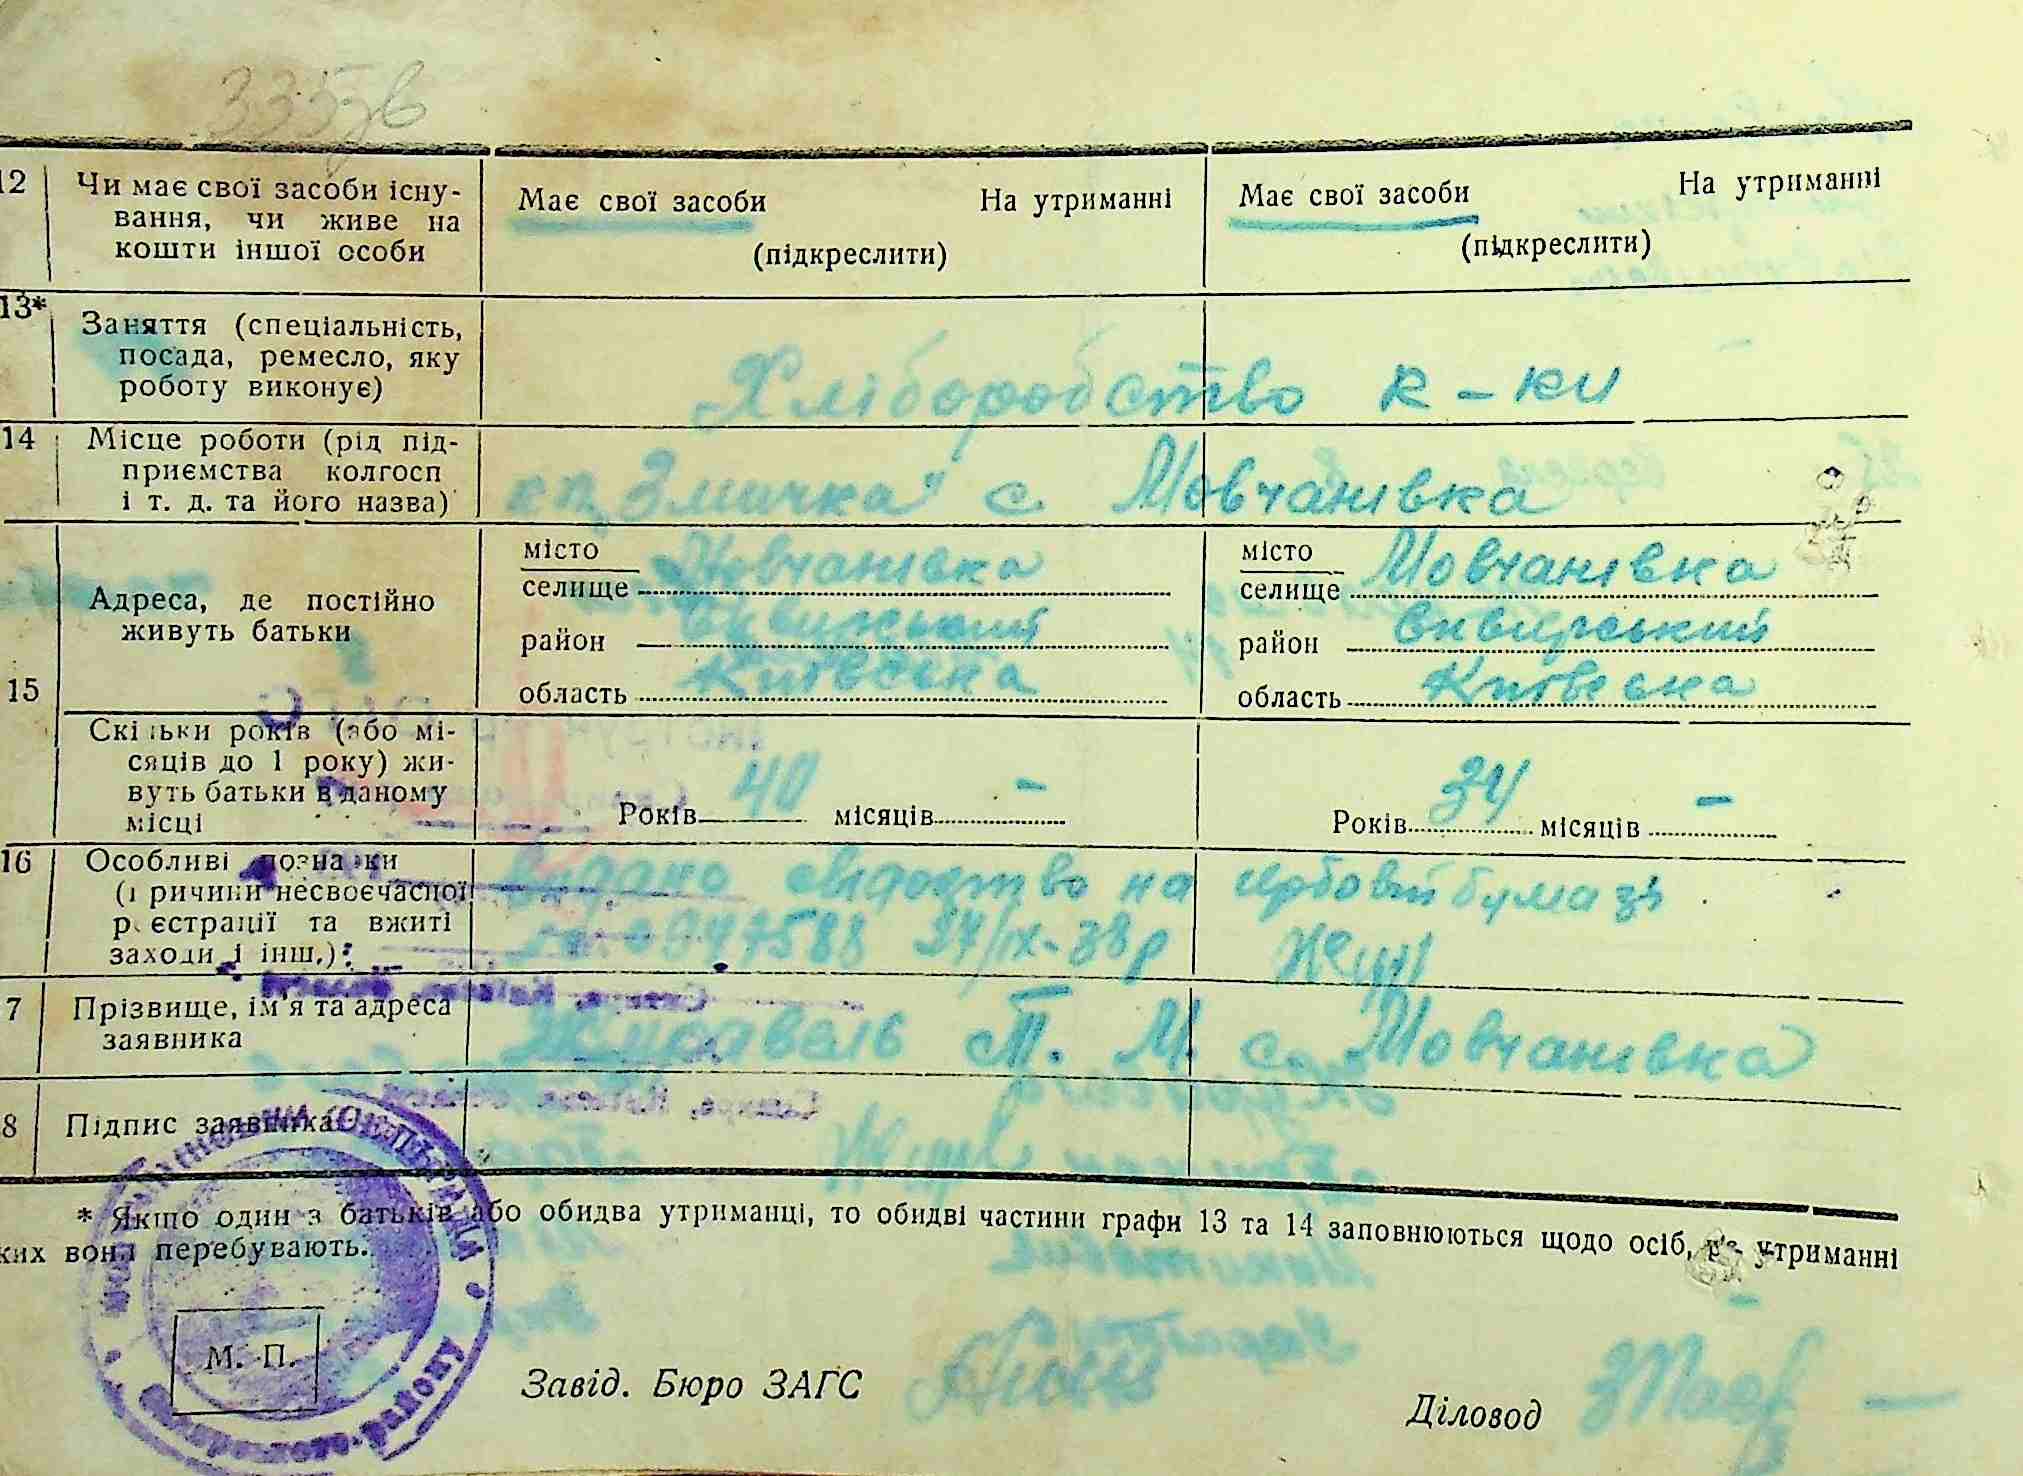 12 Чи має свої засоби існу-
вання, чи живе на
кошти іншої особи
Має свої засоби На утриманні
(підкреслити)
Має свої засоби На утриманні
(підкреслити)
13* Заняття (спеціальність,
посада, ремесло, яку
роботу виконує)
Хліборобство к-ки
14 Місце роботи (рід під-
приємства колгосп
і т. д. та його назва)
кп „Змичка" с. Мовчанівка
15 Адреса, де постійно
живуть батьки
місто
селище Мовчанівка
район
область Київська
місто
селище Мовчанівка
район
область Київська
Скільки років (або мі-
сяців до 1 року) жи-
вуть батьки в даному
місці
Років 40 місяців –
Років 34 місяців –
16 Особливі познаки
(причини несвоєчасної
реєстрації та вжиті
заходи і інш.):
видано свідоцтво на гербовій бумазі
7 Прізвище, ім'я та адреса
заявника
Т. М. с. Мовчанівка
8 Підпис заявника
* Якщо один з батьків або обидва утриманці, то обидві частини графи 13 та 14 заповнюються щодо осіб, на утриманні
ких вони перебувають.
М. П.
Завід. Бюро ЗАГС
Діловод